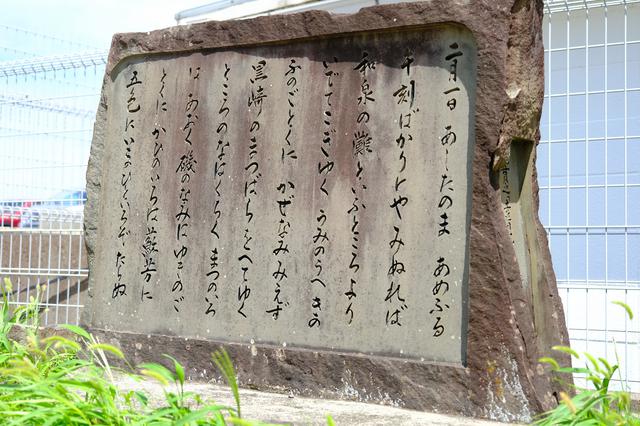 二月一日 あしたのま あめふる
午刻ばかりにやみぬれば
和泉の灘といふところより
いでてこぎゆく うみのうへ きの
ふのごとくに かぜなみみえず
黒崎のまつばらをへてゆく
ところのなはくろく まつのいろ
は あをく 磯のなみはゆきのご
とくに かひのいろは蘇芳に
五色にいまひといろぞたらぬ